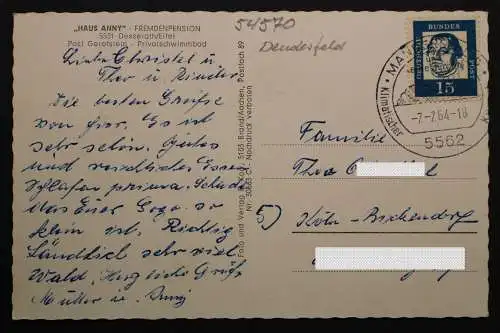 „HAUS ANNY" - FREMDENPENSION
5531 Deuserath/Eifel
Post Gerolstein - Privatschwimmbad
54570
Denderfeld
Liebe Christel u.
Theo u. Kinder
Die besten Grüße
von hier. Es ist
sehr schön. Gutes
und reichliches Essen
Schlafen prima. Schade
das Euer Gogo so
klein ist. Richtig
Ländlich sehr viel
Wald. Herzliche Grüße
Mutter u.
Foto und Verlag 5105 Brand/Aachen, Postfach 89
Nachdruck verboten
DEUTSCHE BUNDESPOST
15
Klimatischer
-7.-7.64-18
5562
Familie
Theo
5) Köln-